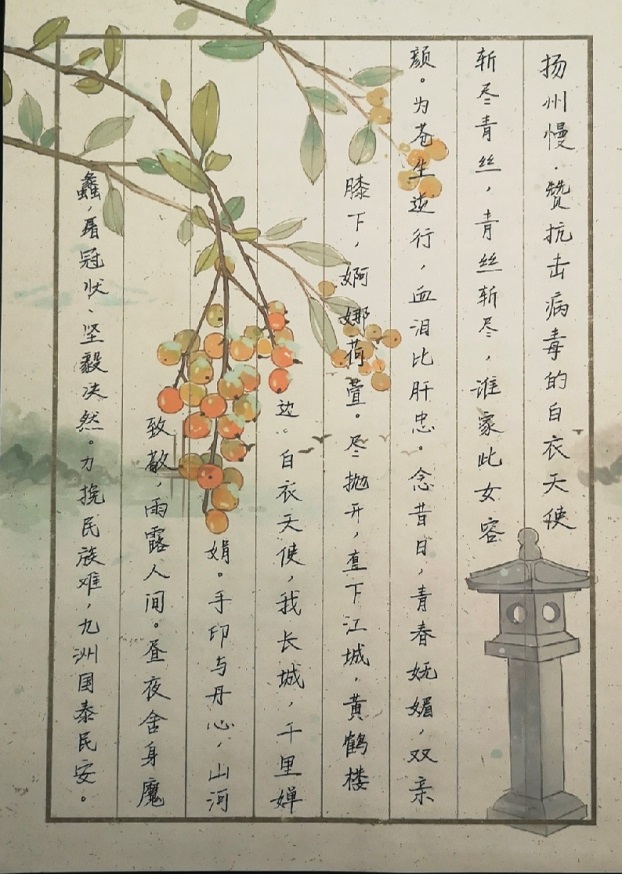 扬州慢·赞抗击病毒的白衣天使
斩尽青丝，青丝斩尽，谁家此女容
颜。为苍生逆行，血泪比肝忠。念昔日，青春妩媚，双亲
膝下，婀娜荷萱。尽抛开，直下江城，黄鹤楼
边。白衣天使，我长城，千里婵
娟。手印与丹心，山河
致敬，雨露人间。昼夜舍身魔
蠡，盾冠状、坚毅决然。力挽民族难，九洲国泰民安。